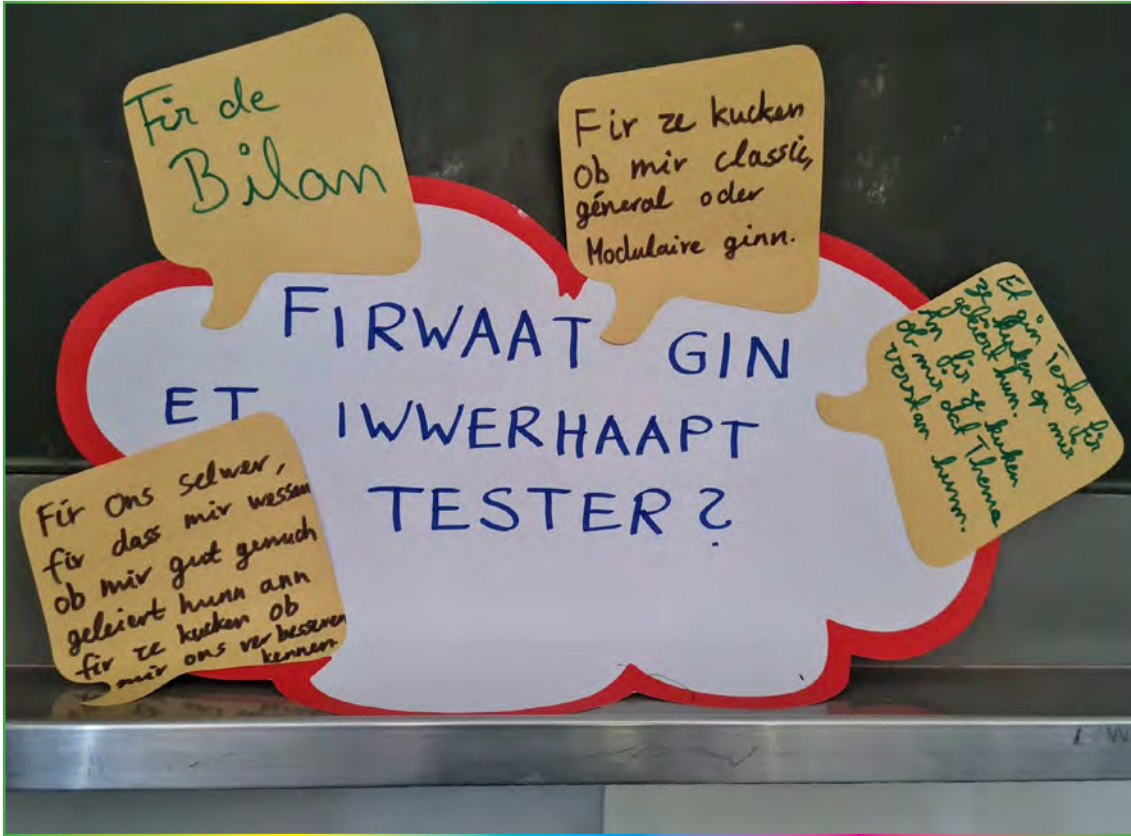 Fir de
Bilan
Fir ze kucken
ob mir classic,
géneral oder
Modulaire ginn.
FIRWAAT GIN
ET IWWERHAAPT
TESTER?
Et gin Tester fir
ze kucken op mir
geleiert hun.
An fir ze kucken
ob mir dat Thema
verstan hunn.
Fir ons selwer,
fir dass mir wessen
ob mir gutt genuch
geleiert hunn ann
fir ze kucken ob
mir ons verbesseren
kennen